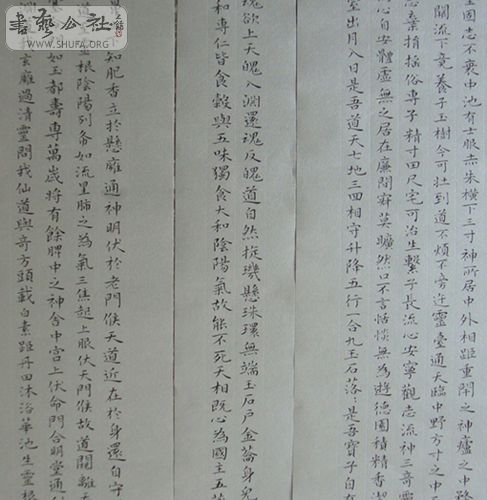 國志不衰中池有士服赤朱橫下三寸神所居中外相距重閉之神廬之中
關流下竟養子玉樹令可壯到道不煩不旁迕靈臺通天臨中野方寸之中
志棄捐搖俗專子精寸田尺宅可治生繫子長流心安寧觀志流神三奇靈
心自安體虛無之居在廉間寂莫曠然口不言恬惔無為遊德園積精香
室出月入日是吾道天七地三回相守升降五行一合九玉石落〻是吾寶子自
魂欲上天魄入淵還魂反魄道自然旋璣懸珠環無端玉石戶金籥身
和專仁皆食穀與五味獨食大和陰陽氣故能不死天相既心為國主五
知肥香立於懸廱通神明伏於老門候天道近在於身還自守
根陰陽列布如流星肺之為氣三焦起上服伏天門候故道闚離天
如玉都壽專萬歲將有餘脾中之神舍中宮上伏命門合明堂通
玄廱過清靈問我仙道與奇方頭載白素距丹田沐浴華池生靈根
書藝公社
WWW.SHUFA.ORG